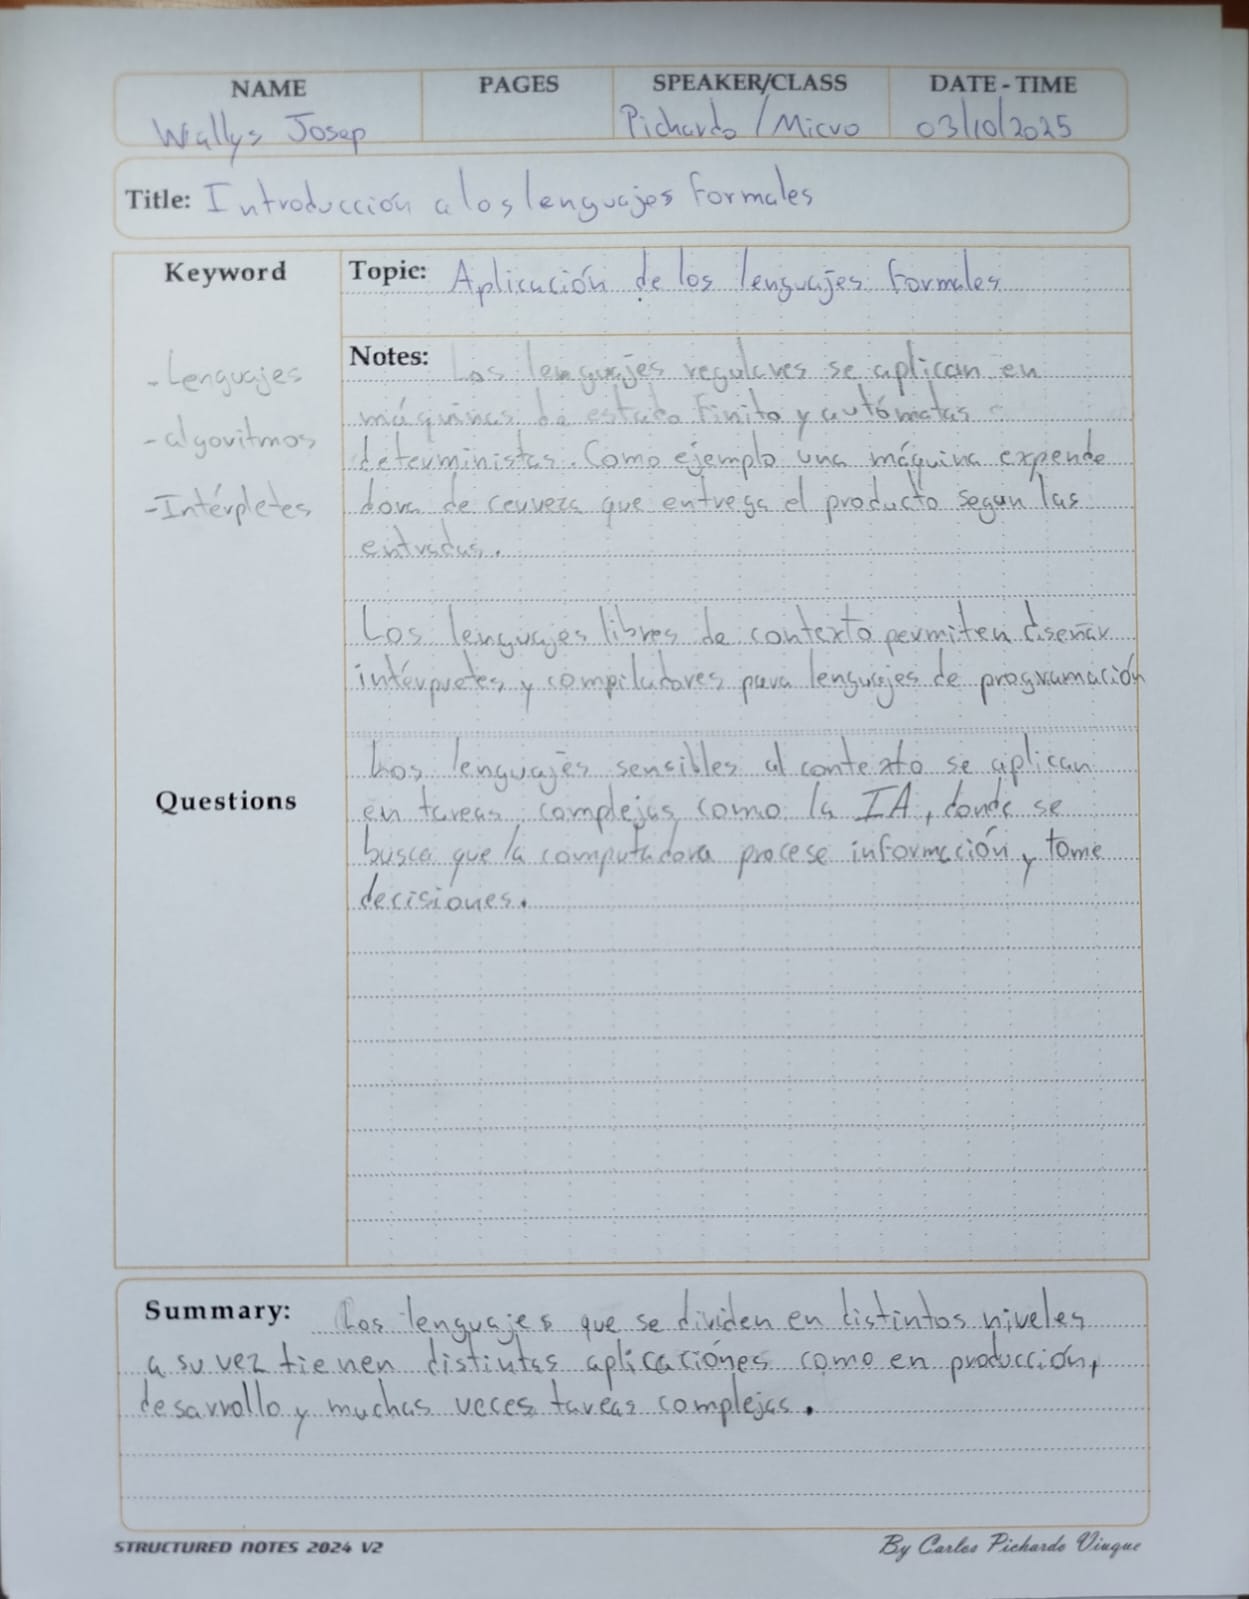 NAME PAGES SPEAKER/CLASS DATE - TIME
Wallys Josep Pichardo / Micro 03/10/2025
Title: Introducción a los lenguajes formales
Keyword
- Lenguajes
- algoritmos
- Intérpletes
Questions
Topic: Aplicación de los lenguajes formales
Notes: Los lenguajes regulares se aplican en
máquinas de estado finito y autómatas
deterministas. Como ejemplo una máquina expende
dora de cerveza que entrega el producto segun las
entradas.
Los lenguajes libres de contexto permiten diseñar
intérpretes y compiladores para lenguajes de programación
Los lenguajes sensibles al contexto se aplican
en tareas complejas como la IA, donde se
busca que la computadora procese información y tome
decisiones.
Summary: Los lenguajes que se dividen en distintos niveles
a su vez tienen distintas aplicaciónes como en producción,
desarrollo y muchas veces tareas complejas.
STRUCTURED NOTES 2024 V2 By Carlos Pichardo Viuque